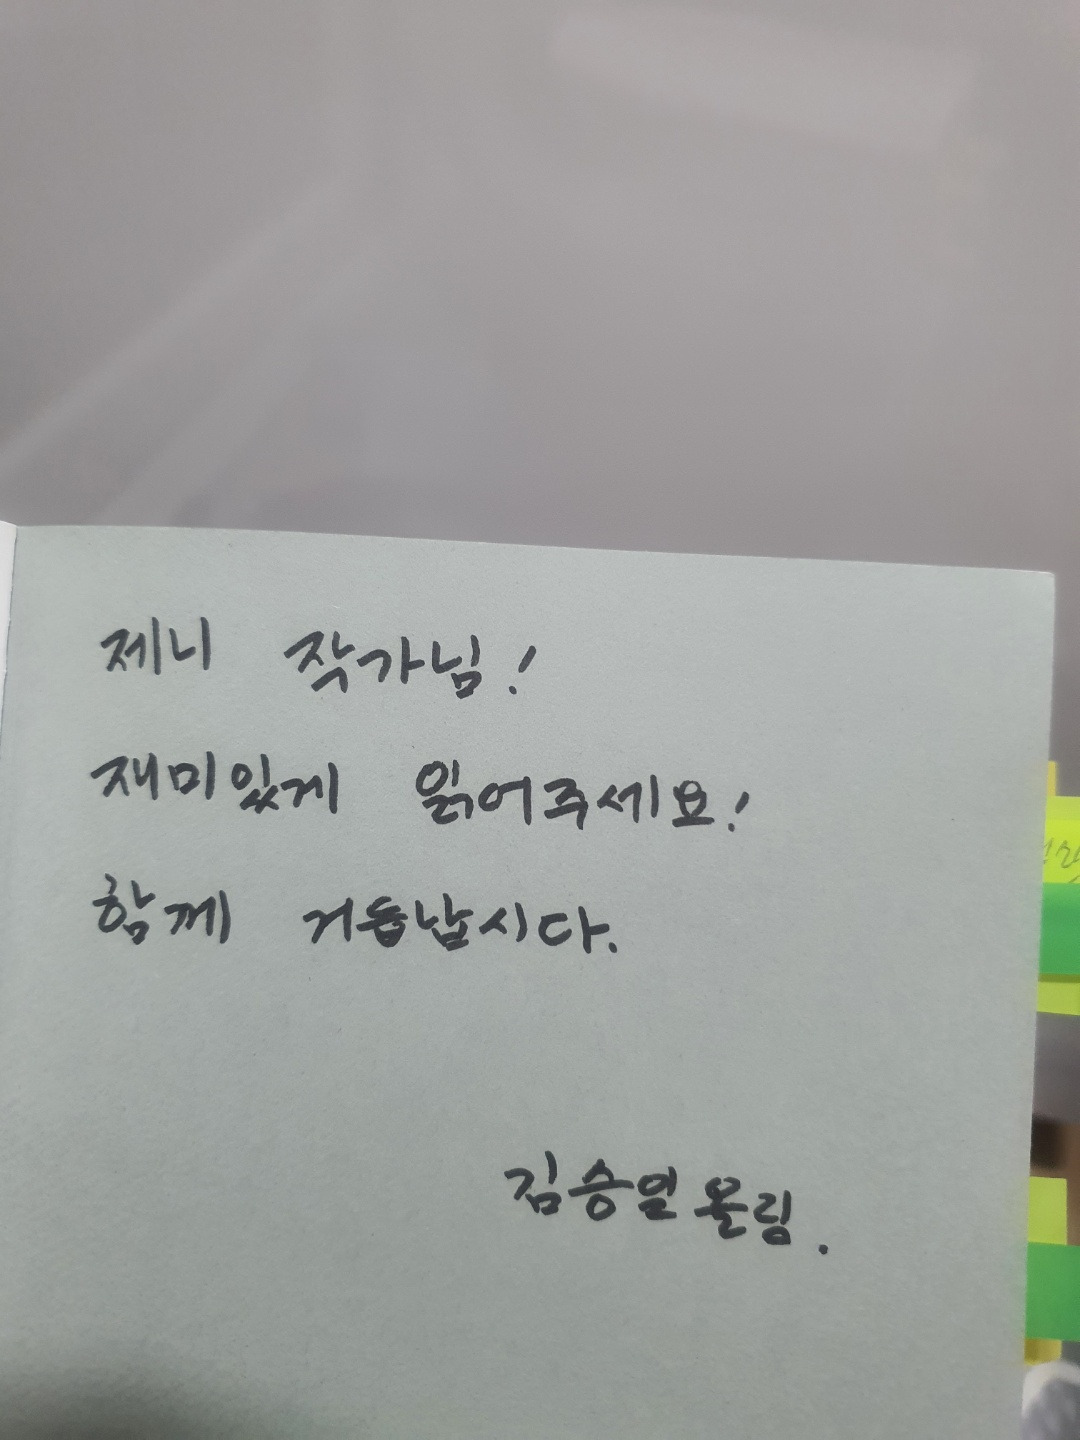 제니 작가님!
재미있게 읽어주세요!
함께 거듭납시다.
김승일 올림.